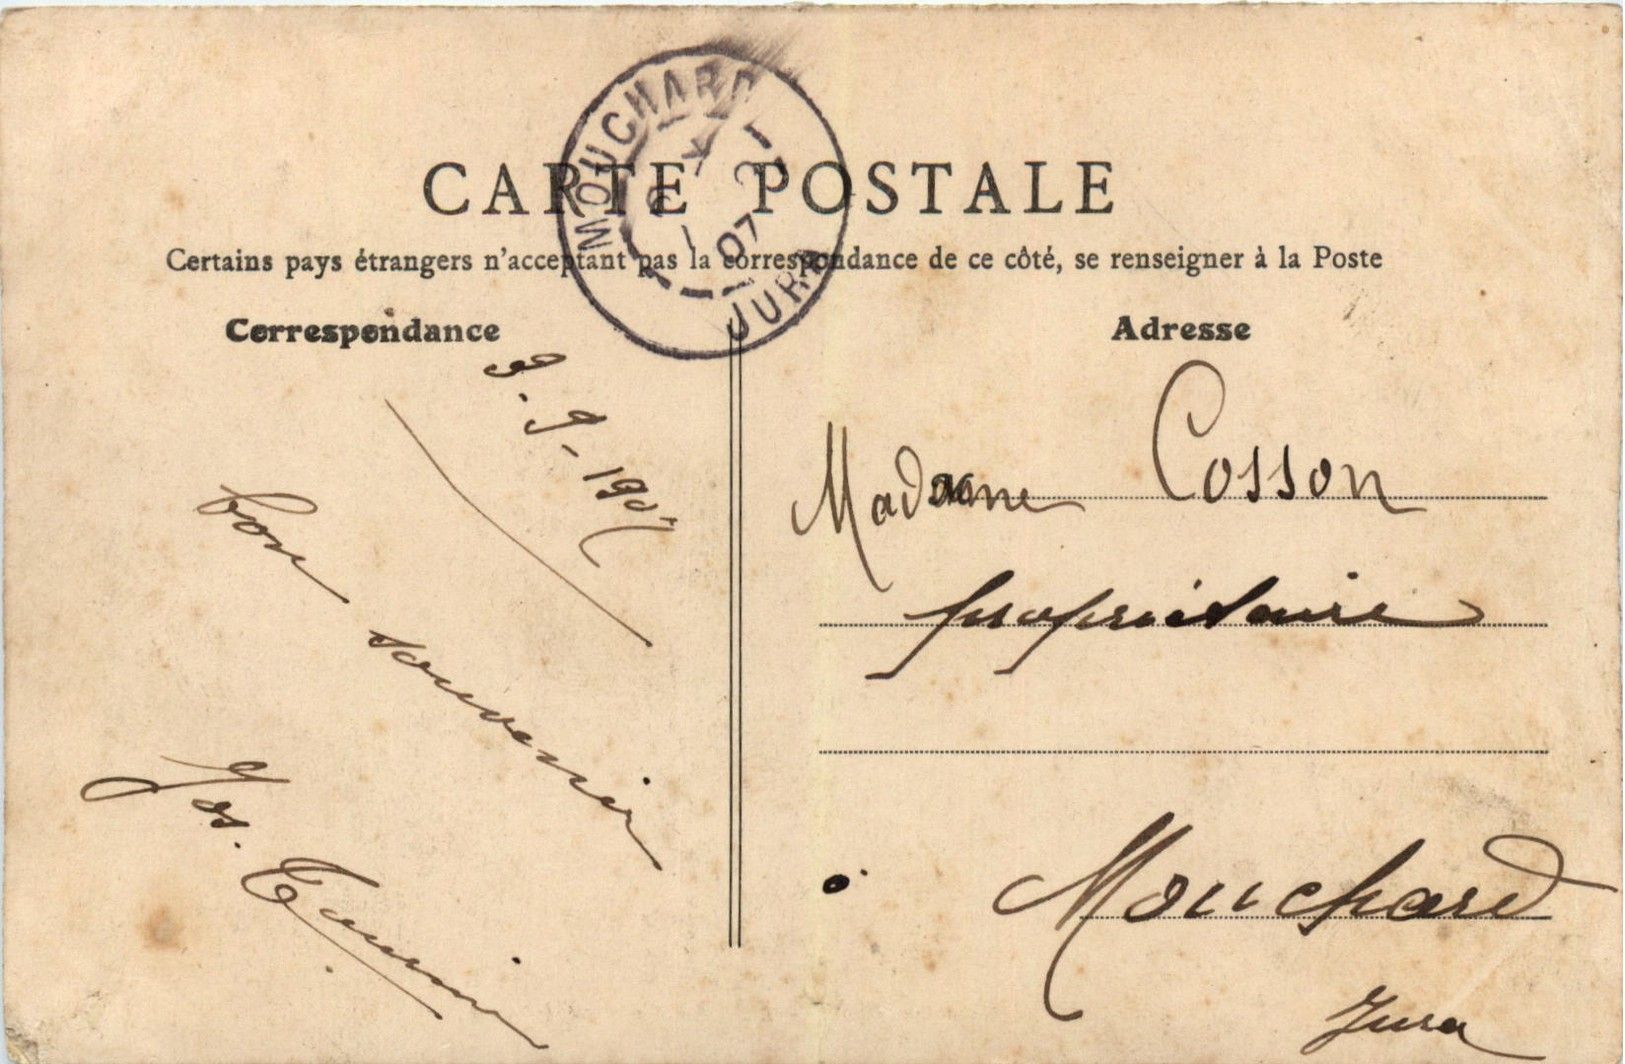 MOUCHARD
JURA
07
CARTE POSTALE
Certains pays étrangers n'acceptant pas la correspondance de ce côté, se renseigner à la Poste
Correspondance
9.9-1907
bon souvenir
Jos.
Adresse
Madame Cosson
propriétaire
Mouchard
Jura